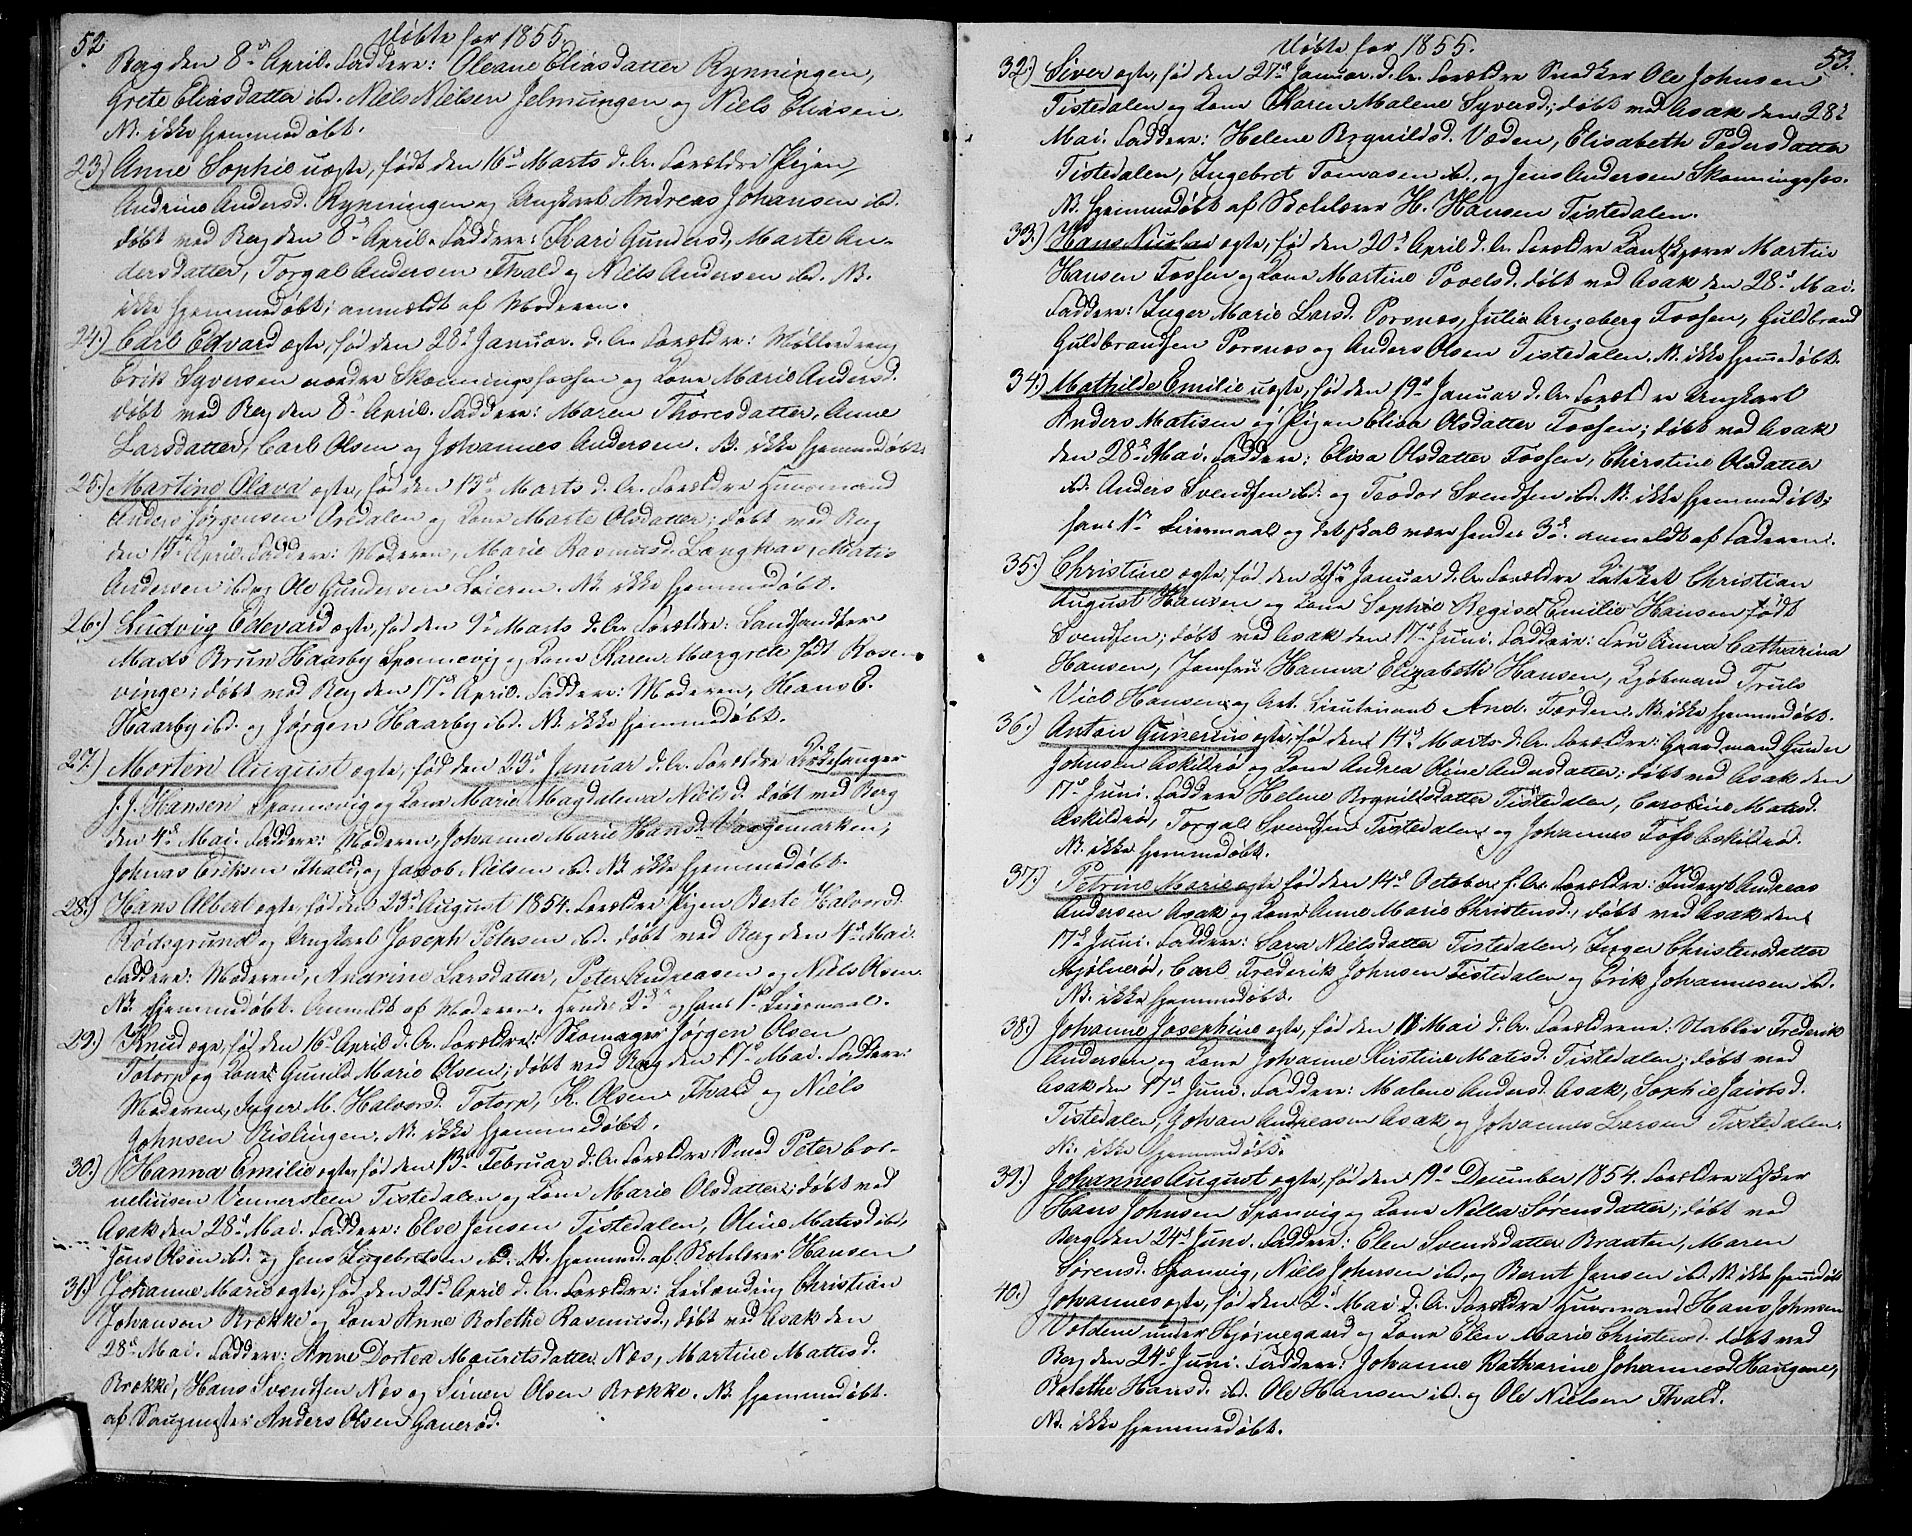 52.
Døbte for 1855.
Berg den 8de April. Faddere: Oleane Eliasdatter Rynningen,
Grete Eliasdatter ibd. Niels Nielsen Jelmungen og Niels Eliasen.
NB. ikke hjemmedøbt.
23.) Anne Sophie uægte, født den 16d Marts d. A. Forældre Pigen
Andrine Andersd. Rynningen og Ungkarl Andreas Johansen ibd.
døbt ved Berg den 8d April. Faddere: Kari Gundersd, Marte An-
dersdatter, Torgal Andersen Thvald og Niels Andersen ibd. NB.
ikke hjemmedøbt; anmeldt af Moderen.
24.) Carl Edvard ægte, fød den 28d Januar d. A. Forældre: Møllerdreng
Erik Syversen nordre Skonningsfossen og Kone Marie Andersd.
døbt ved Berg den 8d April. Faddere: Maren Thoresdatter, Anne
Larsdatter, Carl Olsen og Johannes Andersen. NB. ikke hjemmedøbt.
25.) Martine Olava ægte, fød den 13d Marts d. A. Forældre Huusmand
Anders Jørgensen Aredalen og Kone Marte Olsdatter; døbt ved Berg
den 15d April. Faddere: Moderen, Marie Rasmusd. Langkas, Matis
Andersen ibd og Ole Gundersen Leieren. NB. ikke hjemmedøbt.
26.) Ludvig Edevard ægte, fød den 9d Marts d. A. Forældre: Landhandler
Mads Brun Haarby Sponnevig og Kone Karen Margrete født Rosen-
vinge; døbt ved Berg den 17d April. Faddere: Moderen, Hans E.
Haarby ibd. og Jørgen Haarby ibd. NB. ikke hjemmedøbt.
27.) Morten August ægte, fød den 23d Januar d. A. Forældre Kirkesanger
J. J. Hansen Sponnevig og Kone Marie Magdalena Nielsd. døbt ved Berg
den 4d Mai. Faddere: Moderen, Johanne Marie Hansd. Vaagemarken;
Johnas Eriksen Thvald, og Jacob Nielsen ibd. NB. ikke hjemmedøbt.
28.) Hans Albert ægte, fød den 23d August 1854. Forældre Pigen Berte Halvorsd.
Rødsgrund og Ungkarl Joseph Petersen ibd. døbt ved Berg den 4d Mai.
Faddere: Moderen, Andrine Larsdatter, Peter Andreasen og Niels Olsen.
NB. hjemmedøbt. Anmeldt af Moderen. Hendes 2d og hans 1ste Leiermaal.
29.) Knud ægte, fød den 16d April d. A. Forældre: Skomager Jørgen Olsen
Totorp og Kone Gunild Marie Olsen; døbt ved Berg den 17d Mai. Faddere:
Moderen, Inger M. Halvorsd. Totorp, K. Olsen Thvald og Niels
Johnsen Rislingen. NB. ikke hjemmedøbt.
30.) Hanna Emilie ægte, fød den 13d Februar d. A. Forældre Smed Peter Cor-
neliusen Vennersteen Tistedalen og Kone Marie Olsdatter; døbt ved
Asak den 28d Mai. Faddere: Else Jensen Tistedalen, Oline Matisd ibd,
Jens Olsen ibd. og Jens Engebretsen ibd. NB. hjemmed. af Skolelærer Hansen
31.) Johanne Marie ægte, fød den 21d April d. A. Forældre: Leilænding Christian
Johansen Brække og Kone Anne Bolethe Rasmusd, døbt ved Asak den
28d Mai. Faddere: Anne Dortea Mauritsdatter Næs, Martine Mattisd.
Brække, Hans Svendsen Næs og Simen Olsen Brække. NB hjemmedøbt.
af Saugmester Anders Olsen Ganerød.
Døbte for 1855.
53.
32.) Siver ægte, fød den 27d Januar d. A. Forældre Snedker Ole Johnsen
Tistedalen og Kone Karen Malene Syversd; døbt ved Asak den 28d
Mai. Faddere: Helene Brynildsd. Væden, Elisabeth Pedersdatter
Tistedalen, Ingebret Tomasen ibd, og Jens Andersen Skonningsfos.
NB. hjemmedøbt af Skolelærer H. Hansen Tistedalen.
33.) Hans Nicolai ægte, fød den 20d April d. A. Forældre Kantskjører Martin
Hansen Fossen og Kone Martine Povelsd. døbt ved Asak den 28d Mai.
Faddere: Inger Marie Larsd. Porsnæs, Julie Arneberg Fossen, Guldbrand
Guldbrandsen Porsnæs og Anders Olsen Tistedalen. NB. ikke hjemmedøbt.
34.) Mathilde Emilie uægte, fød den 19d Januar d. A. Forældre Ungkarl
Anders Matisen og Pigen Elisa Olsdatter Fossen; døbt ved Asak
den 28d Mai. Faddere: Elisa Olsdatter Fossen, Christine Olsdatter
ibd. Anders Svendsen ibd. og Teodor Svendsen ibd. NB. ikke hjemmedøbt;
hans 1ste Leiermaal og det skal være hendes 3d. anmeldt af Faderen.
35.) Christine ægte, fød den 21d Januar d. A. Forældre Kateket Christian
August Hansen og Kone Sophie Regise Emilie Hansen født
Svendsen; døbt ved Asak den 17d Juni. Faddere: Fru Anna Catharina
Hansen, Jomfru Hanna Elizabeth Hansen, Kjøbmand Truls
Viel Hansen og Art. Lieutenant And. Tørden. NB. ikke hjemmedøbt.
36.) Anton Gunerius ægte, fød den 14d Marts d. A. Forældre: Gaardmand Gunder
Johnsen Askildrø og Kone Andrea Oline Andersdatter; døbt ved Asak den
17d Juni. Faddere Helene Brynildsdatter Tistedalen, Caroline Matisd.
Askildrød, Torgal Svendsen Tistedalen og Johannes Tofs Askildrød.
NB. ikke hjemmedøbt.
37.) Petrine Marie ægte fød den 14d October f. A. Forældre: Inderst Andreas
Andersen Asak og Kone Anne Marie Christensd, døbt ved Asak den
17d Juni. Faddere: Sara Nielsdatter Tistedalen, Inger Christensdatter
Mjølnerød, Carl Frederik Johnsen Tistedalen og Erik Johannesen ibd.
NB. ikke hjemmedøbt.
38.) Johanne Josephine ægte, fød den 11 Mai d. A. Forældrene: Stabler Frederik
Andersen og Kone Johanne Kirstine Matisd. Tistedalen, døbt ved
Asak den 17d Juni. Faddere: Malene Andersd. Asak, Sophie Jacobsd.
Tistedalen, Johan Andreasen Asak og Johannes Larsen Tistedalen.
NB. ikke hjemmedøbt.
39.) Johannes August ægte, fød den 19d December 1854. Forældre Fisker
Hans Johnsen Sponvig og Kone Nella Sørensdatter; døbt ved
Berg den 24d Juni. Faddere: Elen Svendsdatter Braaten, Maren
Sørensd. Sponvig, Niels Johnsen ibd, og Bernt Jensen ibd. NB ikke hjemdøbt
40.) Johannes ægte, fød den 2d Mai d. A. Forældre Huusmand Hans Johnsen
Voldene under Hjørnegaard og Kone Elen Marie Christensd. døbt ved
Berg den 24d Juni. Faddere: Johanne Katharine Johannesd Haugene,
Bolethe Hansd. ibd. Ole Hansen ibd. og Ole Nielsen Thvald.
NB. ikke hjemmedøbt.